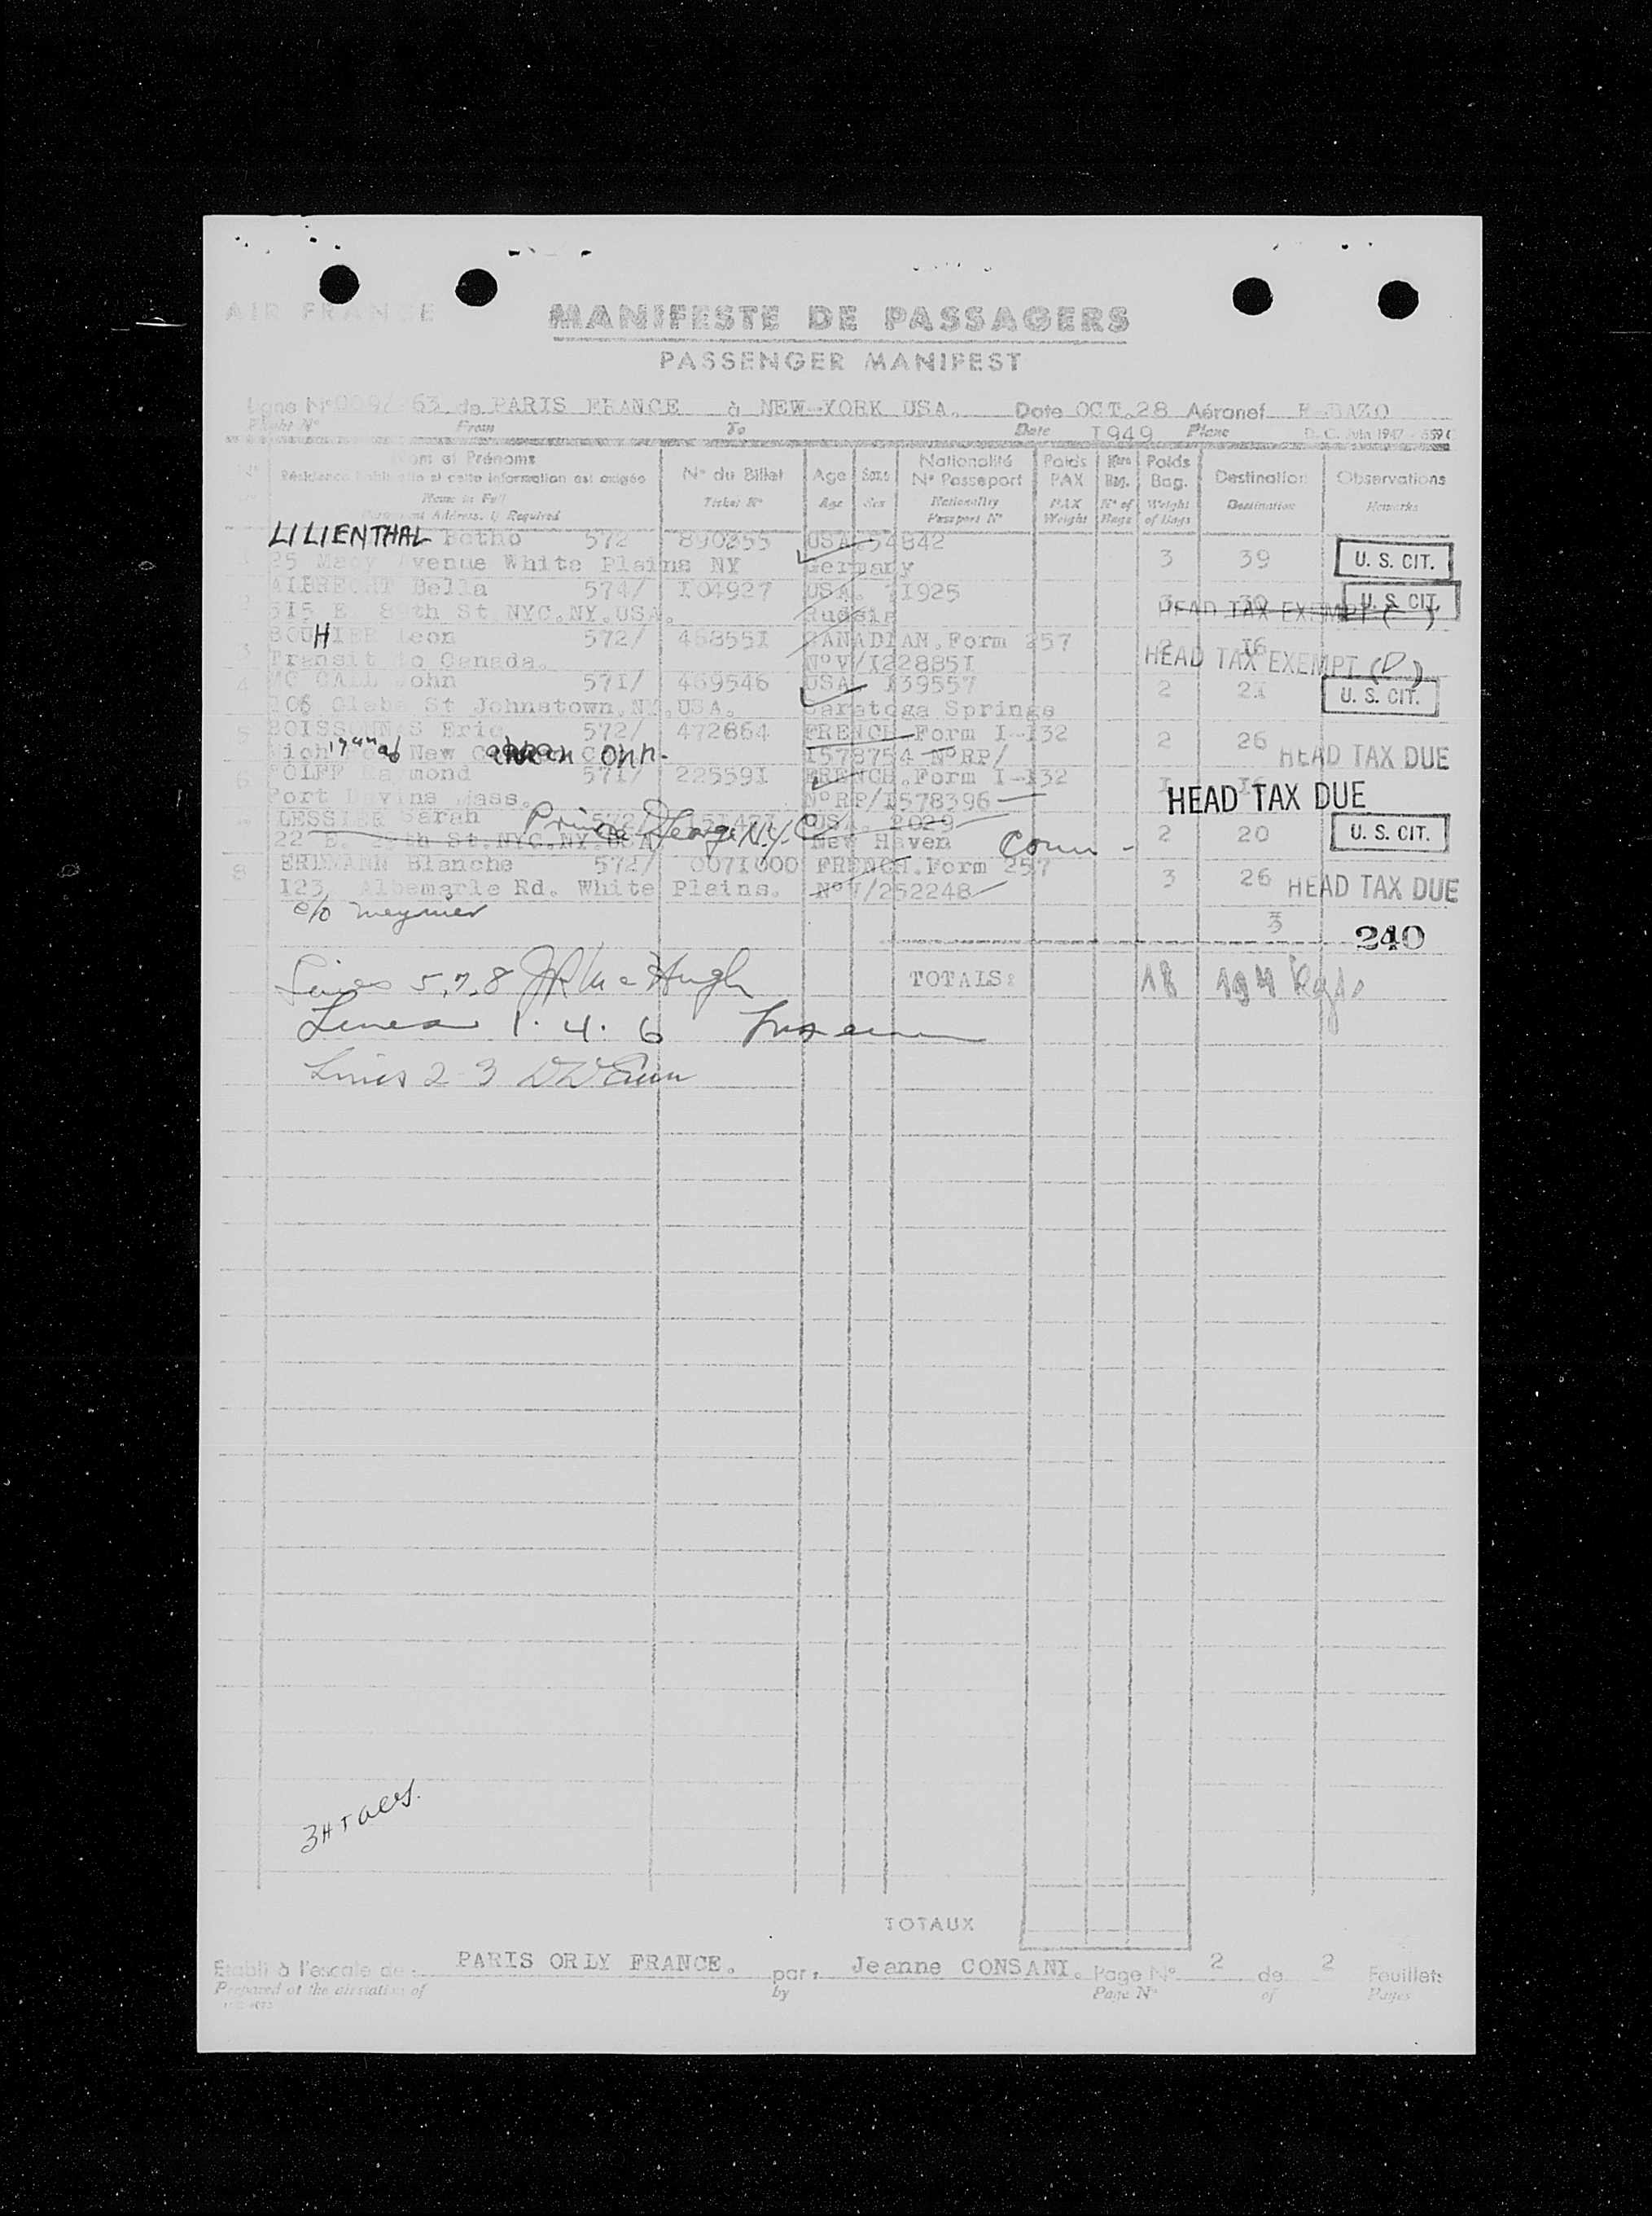 AIR FRANCE
MANIFESTE DE PASSAGERS
PASSENGER MANIFEST
Ligne Nº 009/ 63 de PARIS FRANCE à NEW-YORK USA. Date OCT.28 Aéronef F-BAZO
Flight Nº From To Date 1949 Plane
Nom et Prénoms
Résidence Habituelle si cette information est exigée
Name in Full
Permanent Address, if Required
Nº du Billet
Ticket Nº
Age
Age
Sexe
Sex
Nationalité
Nº Passeport
Nationality
Passport Nº
Poids
PAX
PAX
Weight
Nbre
Bag.
Nº of
Bags
Poids
Bag.
Weight
of Bags
Destination
Destination
Observations
Remarks
1 LILIENTHAL Botho 572 890855 USA.54842
25 Macy Avenue White Plains NY Germany 3 39 U. S. CIT.
2 ALBRECHT Bella 574/ I04927 USA. 71925
515 E. 8 th St.NYC.NY.USA. Russia 3 30 HEAD TAX EXEMPT ( ) U. S. CIT.
3 BOUHIER Leon 572/ 458551 CANADIAN.Form 257
Transit to Canada. NºV/I22885I 2 I6 HEAD TAX EXEMPT (D)
4 MC CALL John 57I/ 469546 USA I39557
St Johnstown.NY.USA. Saratoga Springs 2 21 U. S. CIT.
5 BOISSONNAS Eric 572/ 472864 FRENCH Form I-I32
New Canaan Conn. I578754 NºRP/ 2 26 HEAD TAX DUE
6 Raymond 57I/ 22559I FRENCH.Form I-I32
Port Devins Mass. NºRP/I578396 I I6 HEAD TAX DUE
LESSLER Sarah 572/ USA. 2029
22 E. 29th St.NYC.NY.USA Prince George N.Y.C. New Haven Conn - 2 20 U. S. CIT.
8 ERDMANN Blanche 572/ 0071000 FRENCH.Form 257
I23, Albemarle Rd. White Plains. NºV/252248 3 26 HEAD TAX DUE
c/o Meynier
240
TOTALS: 18 194 Kgs.
Lines 5,7,8 JR McHugh
Lines 1. 4. 6
Lines 2 3
TOTAUX
Etabli à l'escale de PARIS ORLY FRANCE. par: Jeanne CONSANI. Page Nº 2 de 2 Feuillets
Prepared at the airstation of by Page Nº of Pages